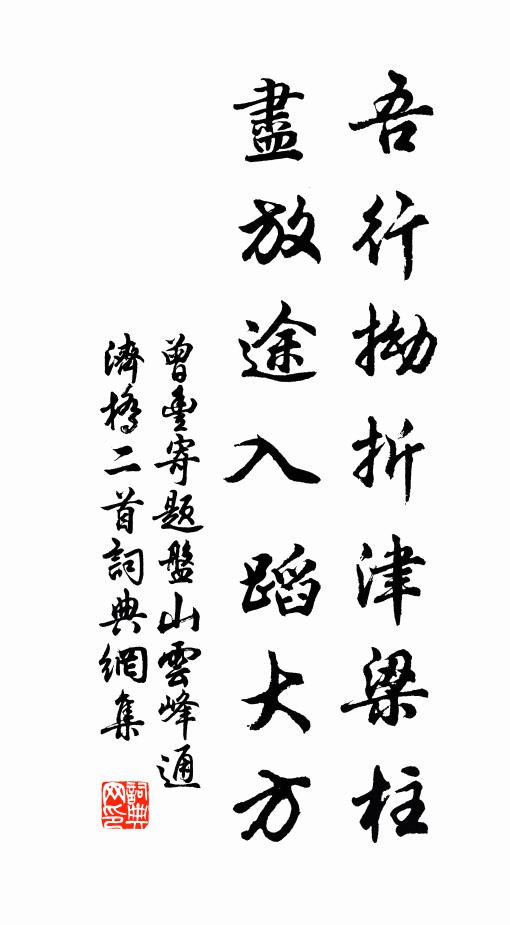 吾行拗折津梁柱
盡放途入蹈大方
曾豐寄題盤山雲峰通
濟橋二首詞典網集
詞典网印